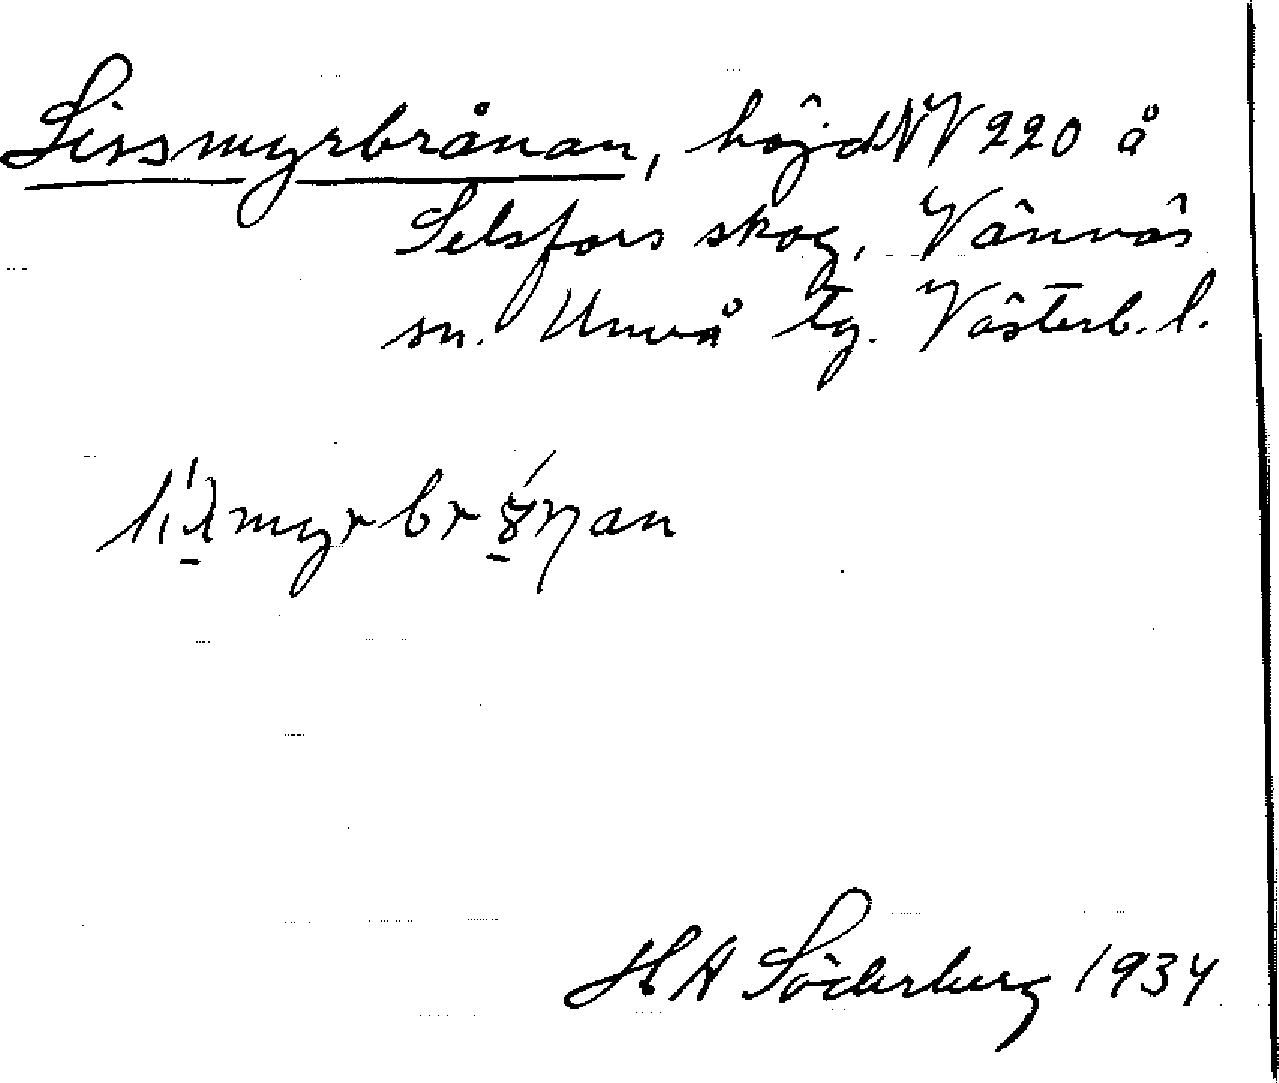 Lissmyrbrånan, höjd NV 220 å
Selsfors skog, Vännäs
sn. Umeå tg. Västerb. l.
HA Söderberg 1934